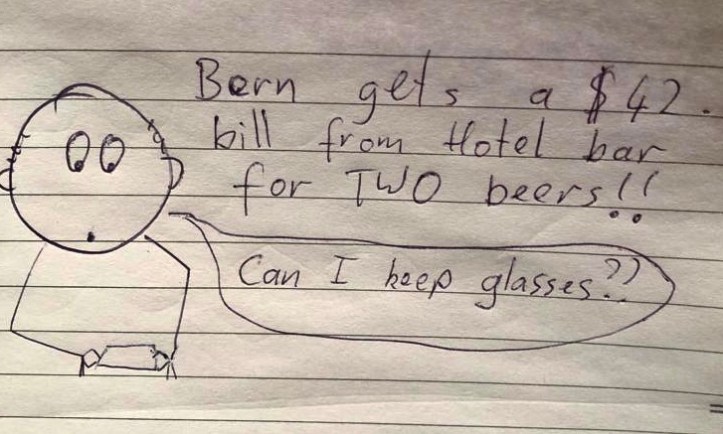 Bern gets a $42.
bill from Hotel bar
for TWO beers!!
Can I keep glasses??